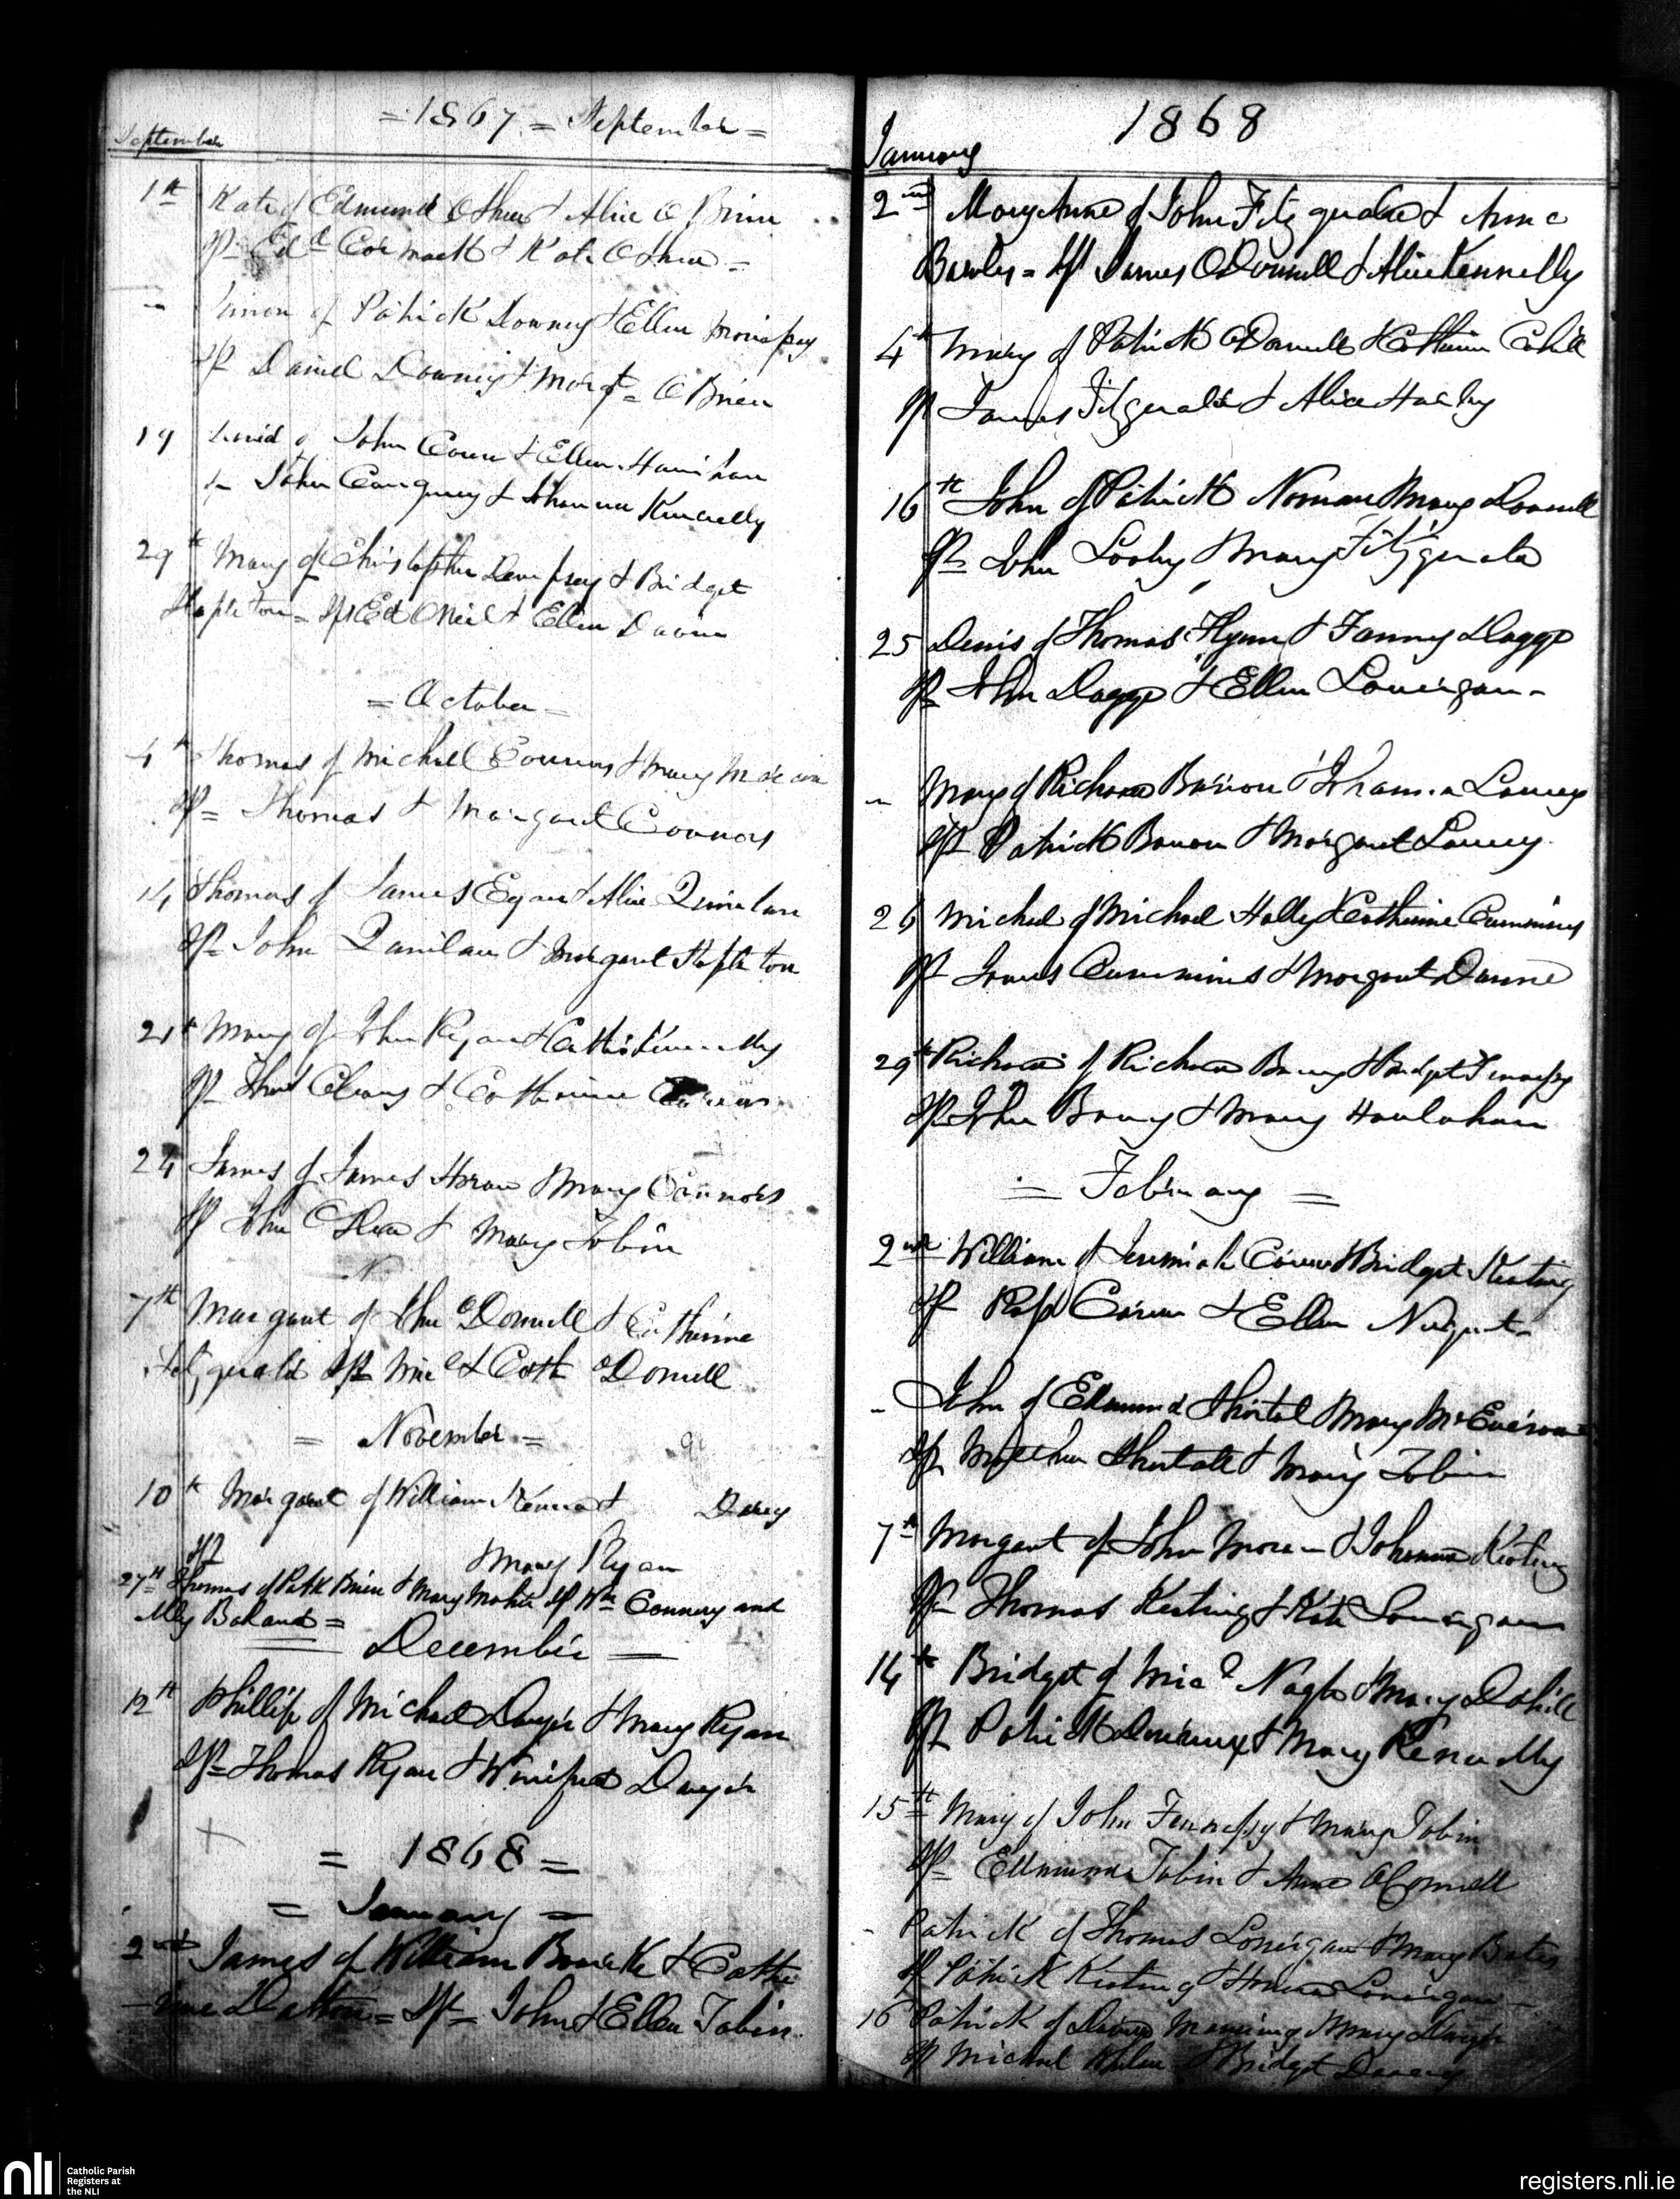 = 1867 = September =
September
1st Kate of Edmund O Shea & Alice O Brien
Sp = Edd Cormack & Kate O Shea =
- of Patrick Downey & Ellen
Sp Daniel Downey & Margt = O Brien
19 David of John Coren & Ellen Hanrahan
John & Johanna Kennelly
29th Mary of Christopher Dempsey & Bridget
Stapleton = Sp Ed O Neil & Ellen Davin
= October =
4th Thomas of Michael Connors & Mary
Sp = Thomas & Margaret Connors
14 Thomas of James Egan & Alice Quinlan
Sp John Quinlan & Margaret Stapleton
21st Mary of John Ryan & Cath Kennelly
Sp Cleary & Catherine
24 James of James Horan & Mary Connors
Sp John O Dea & Mary Tobin
N
7th Margaret of John O Donnell & Catherine
Fitzgerald Sp Mic l & Cath O Donnell
= November =
10th Margaret of William Kenna & Darcy
Sp Mary Ryan
27th Thomas of Patk Brien & Mary Maher Sp Wm Connery and
Ally Boland =
December
12th Phillip of Michael Dwyer & Mary Ryan
Sp = Thomas Ryan & Winifred Dwyer
= 1868 =
= January =
2nd James of William Bourke & Cathe
-rine Dalton = Sp = John & Ellen Tobin
1868
January
2nd Mary Anne of John Fitzgerald & Anne
Bowles = Sp James O Donnell & Alice Kennelly
4th Mary of Patrick O Donnell & Catherine Cahill
Sp James Fitzgerald & Alice
16th John of Patrick Noonan & Mary Donnell
Sp John Looby & Mary Fitzgerald
25 Denis of Thomas Flynn & Fanny Dagge
Sp John Dagge & Ellen Lonergan -
- Mary of Richard Barron & Johanna
Sp Patrick Barron & Margaret
26 Michael of Michael Hally & Catherine Cummins
Sp James Cummins & Margaret Dunne
29th Richard of Richard Barry & Bridget Fennessy
Sp John Barry & Mary Houlahan
= February =
2nd William of Jeremiah Coren & Bridget Keating
Sp Coren & Ellen Nugent -
- John of Edmund Shortal & Mary
Sp Matthew Shortall & Mary Tobin
7th Margaret of John Moran & Johanna Keating
Sp Thomas Keating & Kate Lonergan
14th Bridget of Mic l Nagle & Mary Dahill
Sp Patrick & Mary Kennelly
15th Mary of John Fennessy & Mary Tobin
Sp = Edmund Tobin & Anne O Connell
- Patrick of Thomas Lonergan & Mary Bates
Sp Patrick Keating & Lonergan -
16 Patrick of Manning & Mary Dwyer
Sp Michael & Bridget
nli
Catholic Parish
Registers at
the NLI
registers.nli.ie